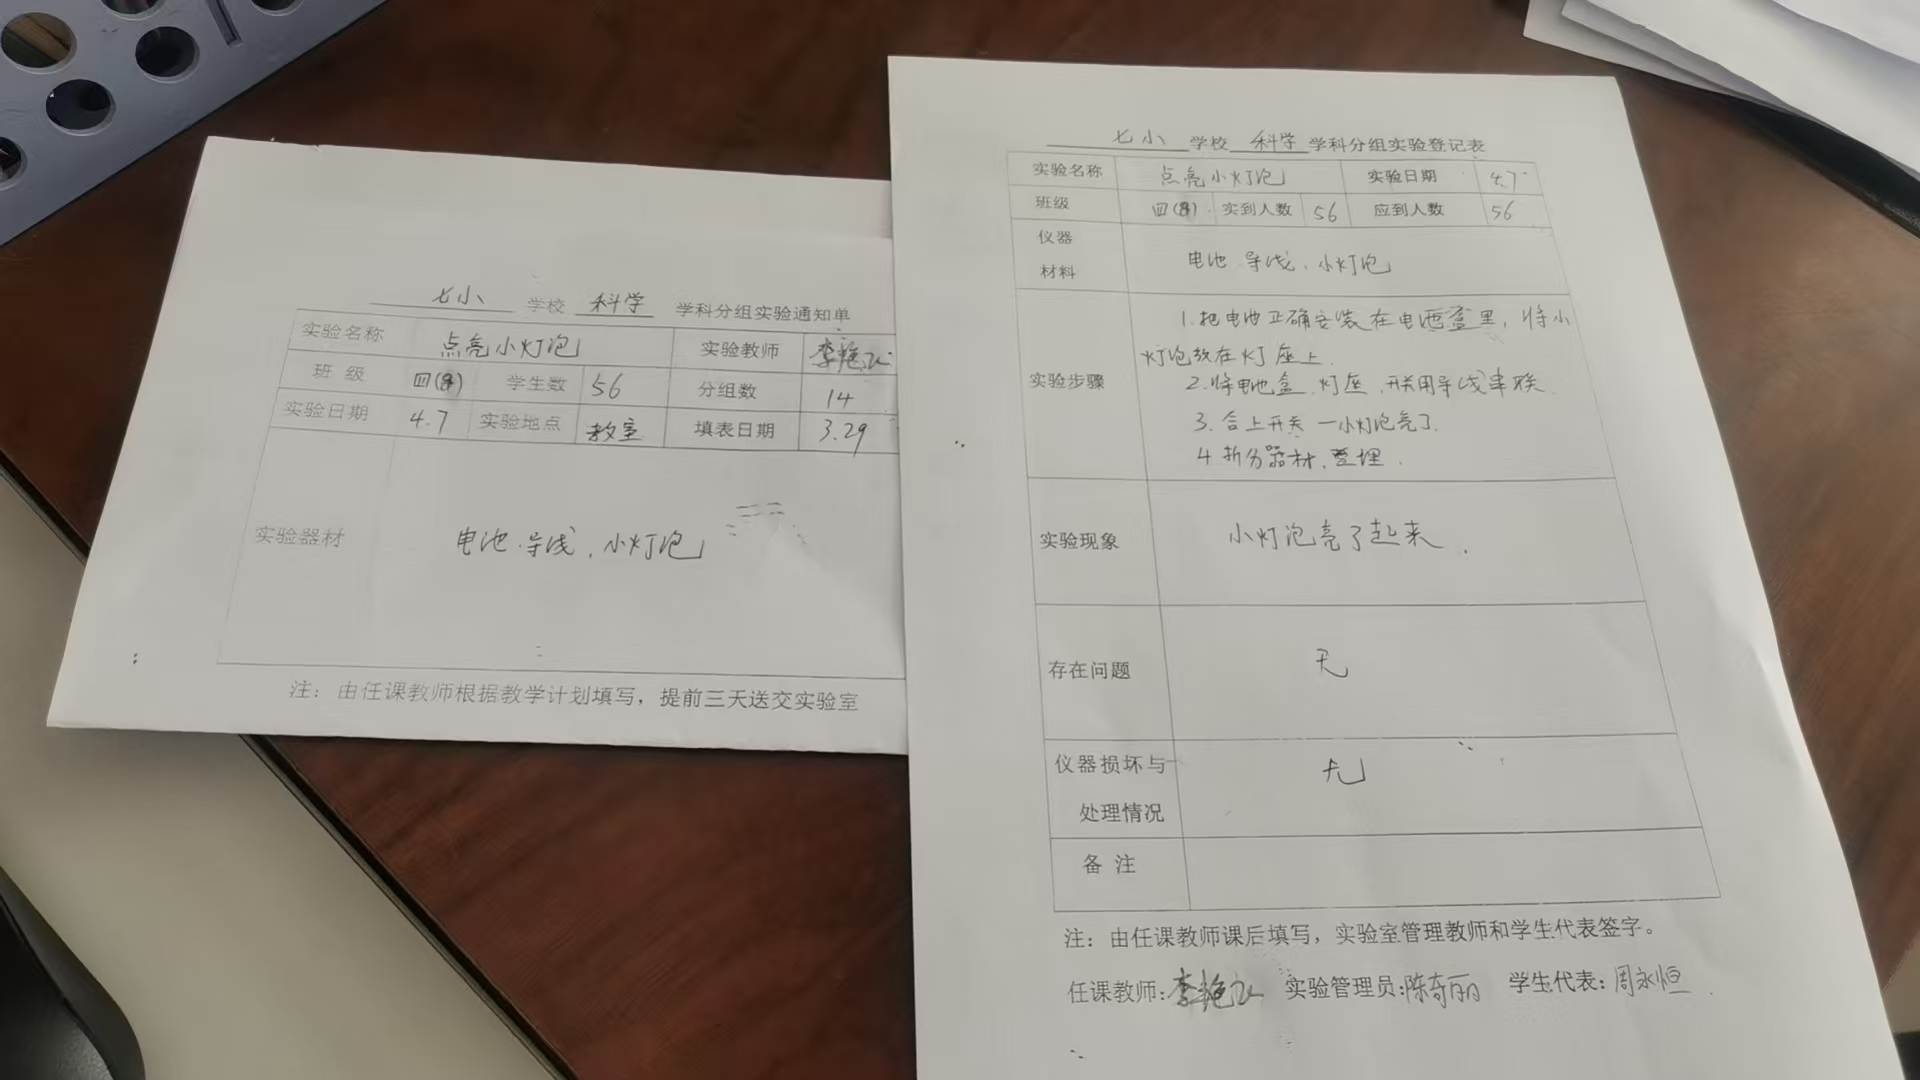 七小 学校 科学 学科分组实验通知单
实验名称 点亮小灯泡 实验教师
班 级 学生数 56 分组数 14
实验日期 4.7 实验地点 教室 填表日期 3.29
实验器材 电池.导线、小灯泡
注：由任课教师根据教学计划填写，提前三天送交实验室
七小 学校 科学 学科分组实验登记表
实验名称 点亮小灯泡 实验日期 4.7
班级 实到人数 56 应到人数 56
仪器
材料
电池.导线、小灯泡
实验步骤
1.把电池正确安装在电池盒里，将小
灯泡放在灯座上.
2.将电池盒.灯座.开关用导线串联.
3.合上开关一小灯泡亮了.
4.拆分器材、整理.
实验现象 小灯泡亮了起来.
存在问题 无
仪器损坏与
处理情况
无
备 注
注：由任课教师课后填写，实验室管理教师和学生代表签字。
任课教师: 实验管理员:陈奇丽 学生代表:周永恒